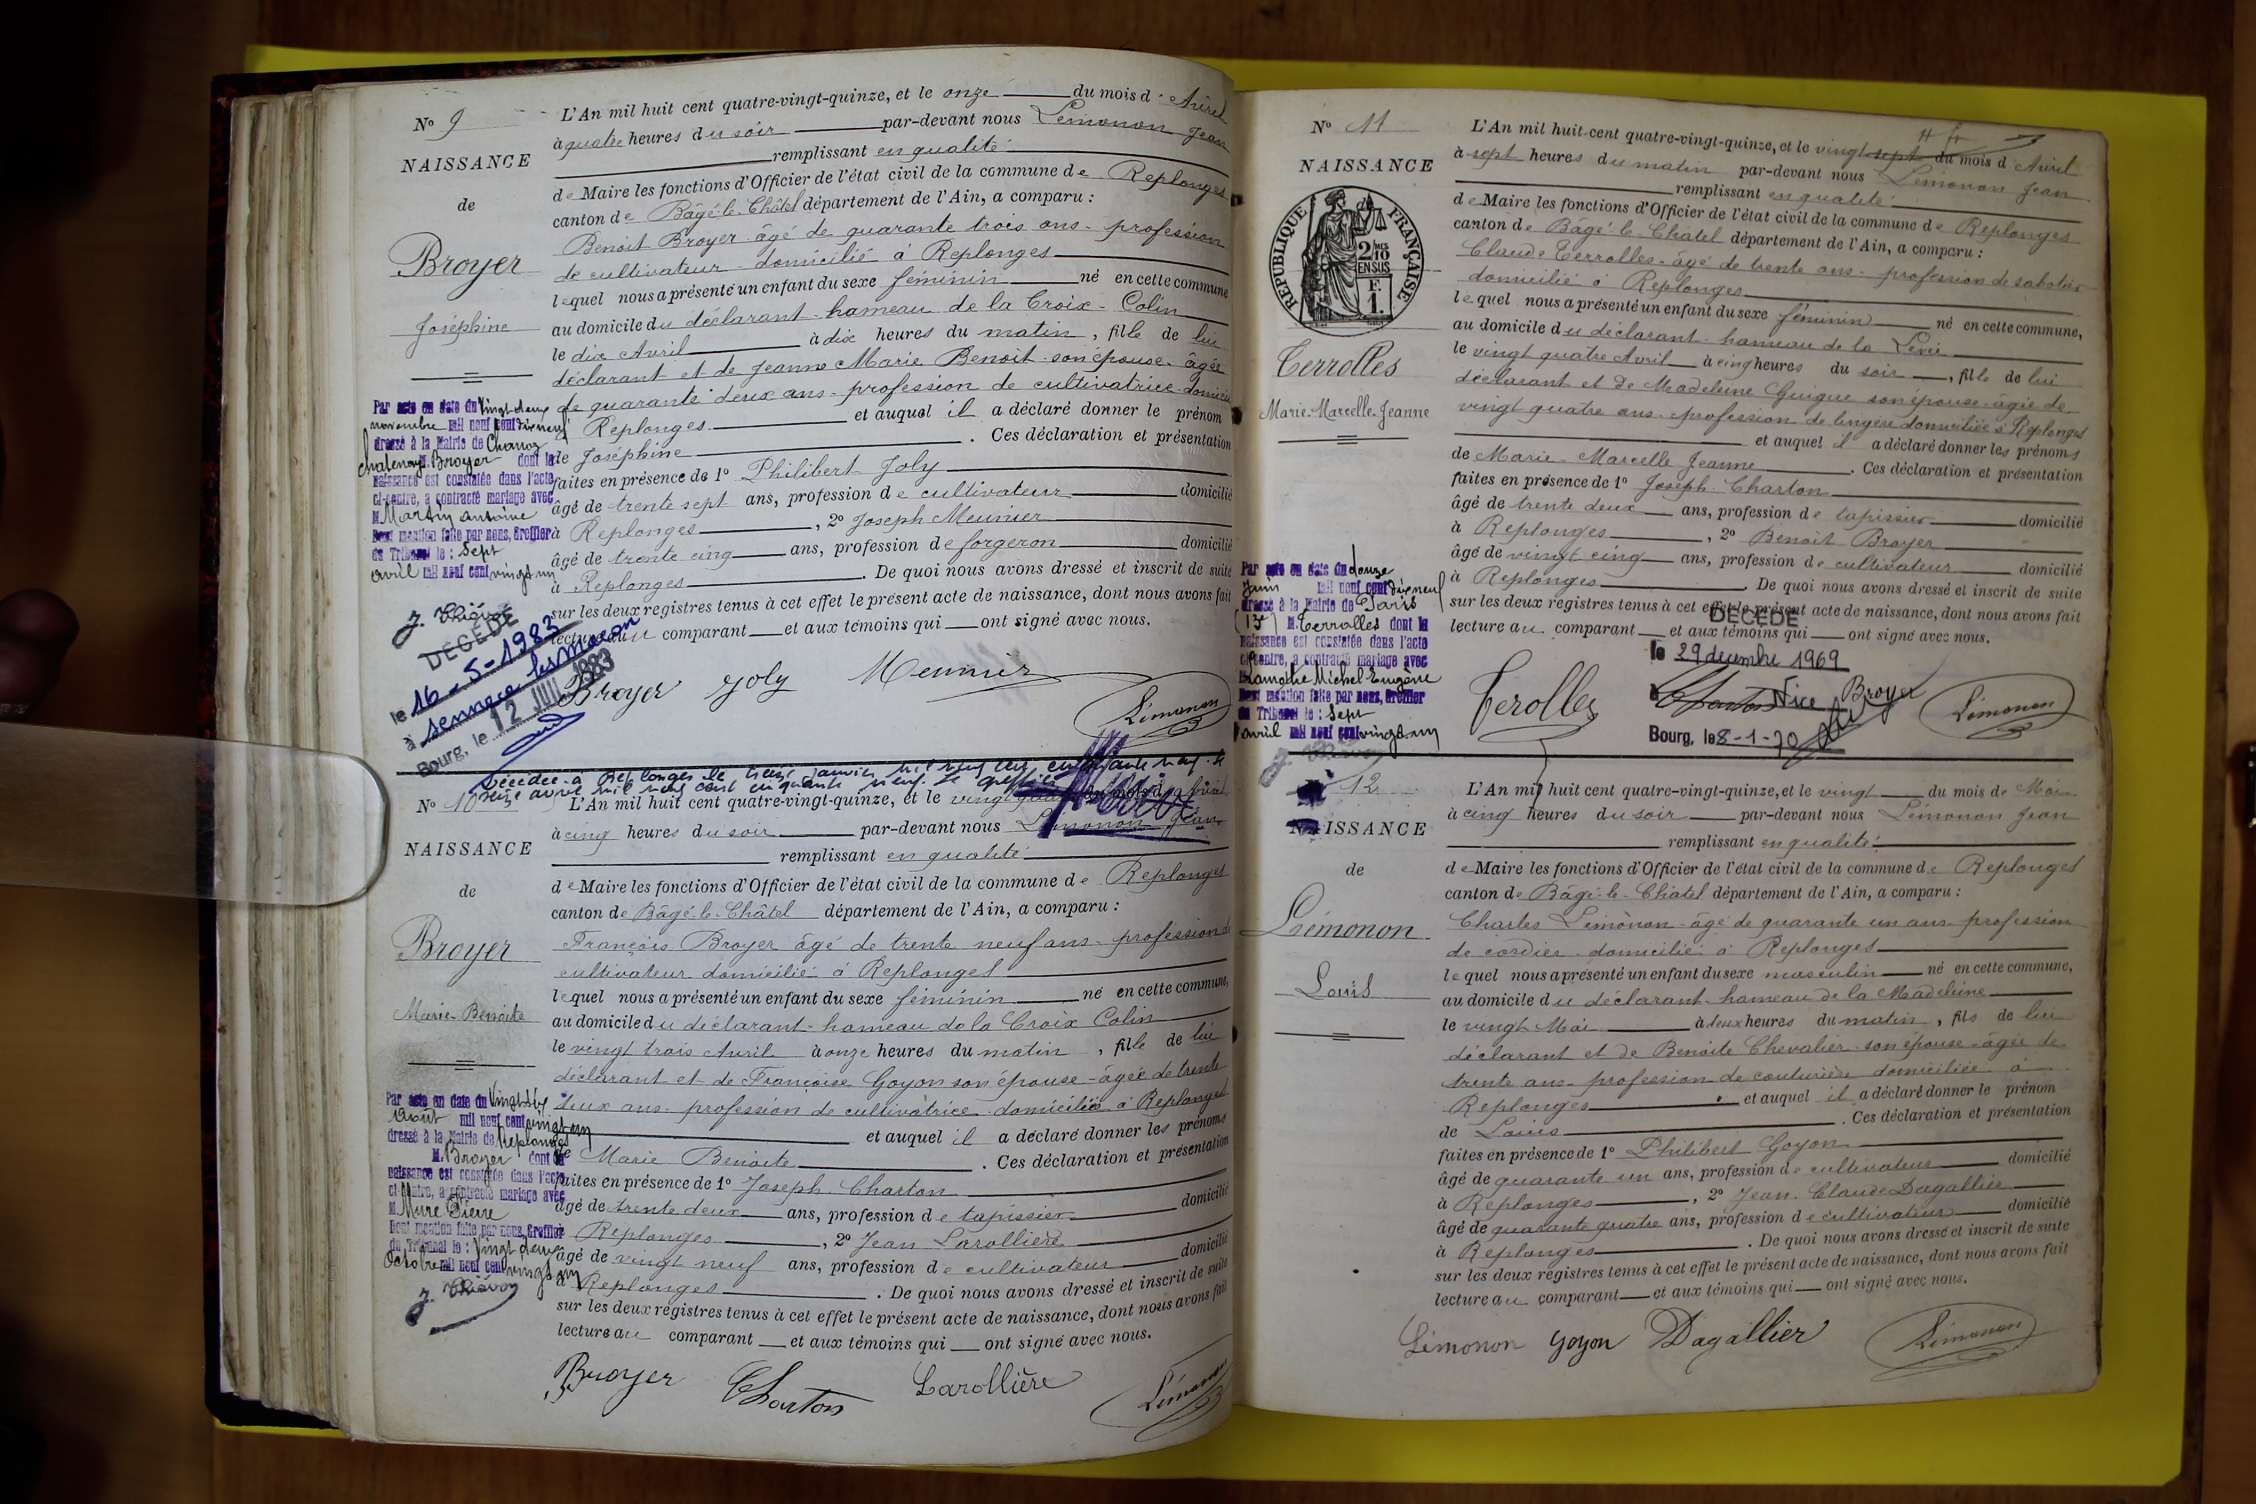 Nº 9
NAISSANCE
de
Broyer
Joséphine
L'An mil huit cent quatre-vingt-quinze, et le onze du mois d'Avril
à quatre heures du soir par-devant nous Lémonon Jean
remplissant en qualité
de Maire les fonctions d'Officier de l'état civil de la commune de Replonges
canton de Bâgé-le-Châtel département de l'Ain, a comparu :
Benoit Broyer âgé de quarante trois ans - profession
de cultivateur - domicilié à Replonges
lequel nous a présenté un enfant du sexe féminin né en cette commune
au domicile du déclarant - hameau de la Croix - Colin
le dix Avril à dix heures du matin, fille de lui
déclarant et de Jeanne Marie Benoit - son épouse - âgée
de quarante deux ans - profession de cultivatrice - domiciliée
Replonges et auquel il a déclaré donner le prénom
de Joséphine . Ces déclaration et présentation
faites en présence de 1º Philibert Joly
âgé de trente sept ans, profession de cultivateur domicilié
à Replonges , 2º Joseph Meunier
âgé de trente cinq ans, profession de forgeron domicilié
à Replonges . De quoi nous avons dressé et inscrit de suite
sur les deux registres tenus à cet effet le présent acte de naissance, dont nous avons fait
lecture au comparant et aux témoins qui ont signé avec nous.
Broyer Joly Meunier
Lémonon
Par acte en date du vingt deux
novembre mil neuf cent dix neuf
dressé à la Mairie de Charnoz
M. Broyer dont la
naissance est constatée dans l'acte
ci-contre, a contracté mariage avec
M. Martin Antoine
Dont mention faite par nous, Greffier
du Tribunal le : Sept
avril mil neuf cent vingt un
DÉCÉDÉ
le 16-5-1983
à Sennecé les Macon
Bourg, le 12 JUIL 1983
décédée à Replonges le treize janvier mil neuf cent cinquante neuf. le
seize avril mil neuf cent cinquante neuf le greffier
Nº 10
NAISSANCE
de
Broyer
Marie-Benoite
L'An mil huit cent quatre-vingt-quinze, et le vingt
à cinq heures du soir par-devant nous Lémonon Jean
remplissant en qualité
de Maire les fonctions d'Officier de l'état civil de la commune de Replonges
canton de Bâgé-le-Châtel département de l'Ain, a comparu :
François Broyer âgé de trente neuf ans - profession de
cultivateur domicilié à Replonges
lequel nous a présenté un enfant du sexe féminin né en cette commune,
au domicile du déclarant - hameau de la Croix Colin
le vingt trois Avril à onze heures du matin, fille de lui
déclarant et de Françoise Goyon son épouse - âgée de trente
deux ans - profession de cultivatrice - domiciliée à Replonges
et auquel il a déclaré donner les prénoms
de Marie Benoite . Ces déclaration et présentation
faites en présence de 1º Joseph Charton
âgé de trente deux ans, profession de tapissier domicilié
à Replonges , 2º Jean Larollière
âgé de vingt neuf ans, profession de cultivateur domicilié
à Replonges . De quoi nous avons dressé et inscrit de suite
sur les deux registres tenus à cet effet le présent acte de naissance, dont nous avons fait
lecture au comparant et aux témoins qui ont signé avec nous.
Broyer Charton Larollière Lémonon
Par acte en date du Vingt six
Août mil neuf cent vingt un
dressé à la Mairie de Replonges
M. Broyer dont la
naissance est constatée dans l'acte
ci-contre, a contracté mariage avec
M. Mure Pierre
Dont mention faite par nous, Greffier
du Tribunal le : Vingt deux
Octobre mil neuf cent vingt un
Nº 11
NAISSANCE
RÉPUBLIQUE FRANÇAISE
2/10 MES
EN SUS
F.
1.
Terrolles
Marie-Marcelle-Jeanne
L'An mil huit-cent quatre-vingt-quinze, et le vingt sept du mois d'Avril
à sept heures du matin par-devant nous Lémonon Jean
remplissant en qualité
de Maire les fonctions d'Officier de l'état civil de la commune de Replonges
canton de Bâgé-le-Chatel département de l'Ain, a comparu :
Claude Terrolles - âgé de trente ans - profession de sabotier
domicilié à Replonges
lequel nous a présenté un enfant du sexe féminin né en cette commune,
au domicile du déclarant - hameau de la Levée
le vingt quatre Avril à cinq heures du soir, fille de lui
déclarant et de Madeleine Guigue son épouse - âgée de
vingt quatre ans - profession de lingère domiciliée à Replonges
et auquel il a déclaré donner les prénoms
de Marie Marcelle Jeanne . Ces déclaration et présentation
faites en présence de 1º Joseph Charton
âgé de trente deux ans, profession de tapissier domicilié
à Replonges , 2º Benoit Broyer
âgé de vingt cinq ans, profession de cultivateur domicilié
à Replonges . De quoi nous avons dressé et inscrit de suite
sur les deux registres tenus à cet effet le présent acte de naissance, dont nous avons fait
lecture au comparant et aux témoins qui ont signé avec nous.
DÉCÉDÉ
le 29 décembre 1969
à Nice
Bourg, le 8-1-70
Terolles Charton Broyer Lémonon
Par acte en date du douze
Juin mil neuf cent dix neuf
dressé à la Mairie de Paris
(15) M. Terrolles dont la
naissance est constatée dans l'acte
ci-contre, a contracté mariage avec
M. Lamothe Michel Eugène
Dont mention faite par nous, Greffier
du Tribunal le : Sept
avril mil neuf cent vingt un
12
NAISSANCE
de
Lémonon
Louis
L'An mil huit cent quatre-vingt-quinze, et le vingt du mois de Mai
à cinq heures du soir par-devant nous Lémonon Jean
remplissant en qualité
de Maire les fonctions d'Officier de l'état civil de la commune de Replonges
canton de Bâgé-le-Chatel département de l'Ain, a comparu :
Charles Lémonon - âgé de quarante un ans - profession
de cordier - domicilié à Replonges
lequel nous a présenté un enfant du sexe masculin né en cette commune,
au domicile du déclarant - hameau de la Madeleine
le vingt Mai à deux heures du matin, fils de lui
déclarant et de Benoite Chevalier - son épouse - âgée de
trente ans - profession de couturière domiciliée à
Replonges et auquel il a déclaré donner le prénom
de Louis . Ces déclaration et présentation
faites en présence de 1º Philibert Goyon
âgé de quarante un ans, profession de cultivateur domicilié
à Replonges , 2º Jean Claude Dagallier
âgé de quarante quatre ans, profession de cultivateur domicilié
à Replonges . De quoi nous avons dressé et inscrit de suite
sur les deux registres tenus à cet effet le présent acte de naissance, dont nous avons fait
lecture au comparant et aux témoins qui ont signé avec nous.
Lémonon Goyon Dagallier Lémonon